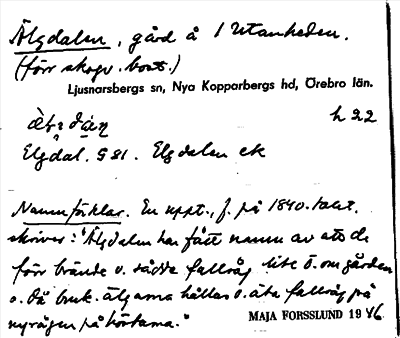 Älgdalen, gård å Utanheden.
(förr skogv. bost.)
Ljusnarsbergs sn, Nya Kopparbergs hd, Örebro län.
h 22
Elgdal. G 81. Elgdalen ek
Namnförklar. En uppt., f. på 1840-talet,
skriver: "Älgdalen har fått namn av att de
förr brände o. sådde fallråg lite ö. om gården
o. då bruk. älgarna hålla o. äta fallråg på
nyrågen på höstarna."
MAJA FORSSLUND 1946.